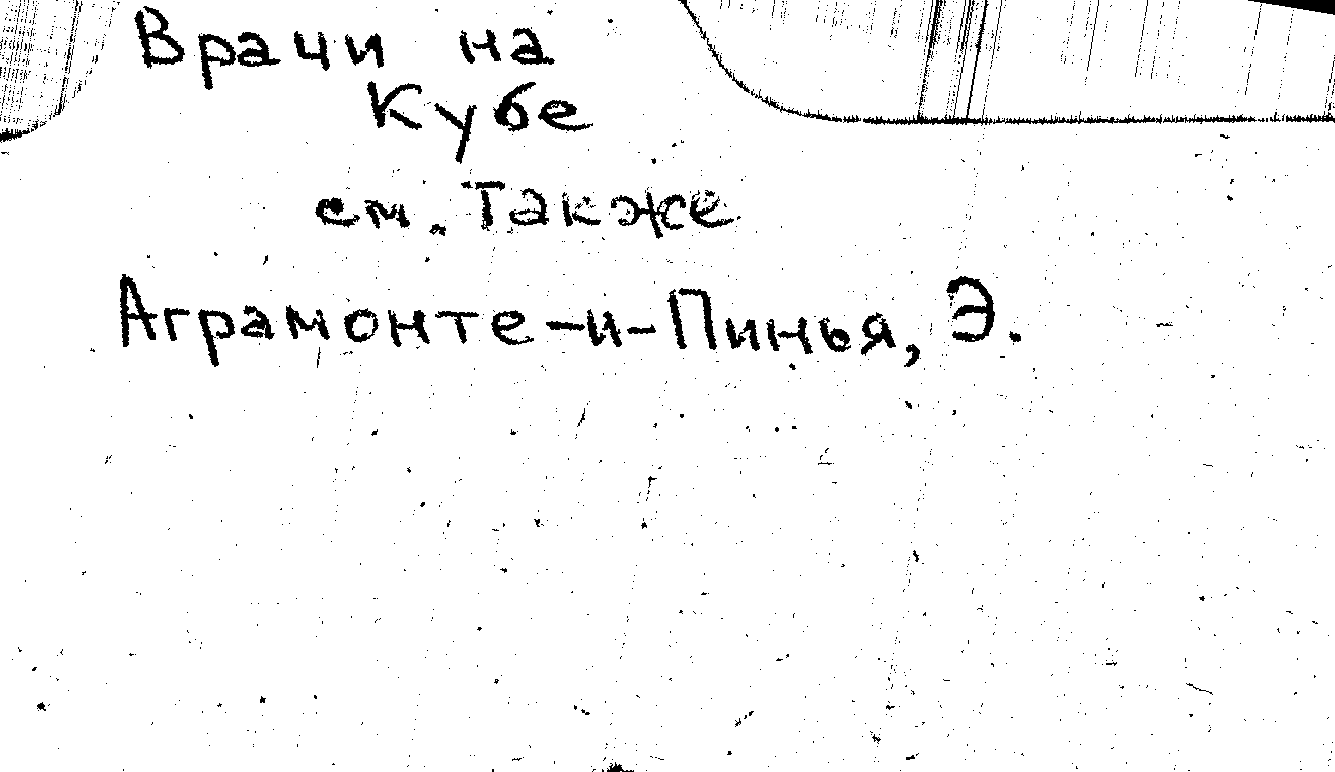 Врачи на
Кубе
см. также
Аграмонте-и-Пинья, Э.